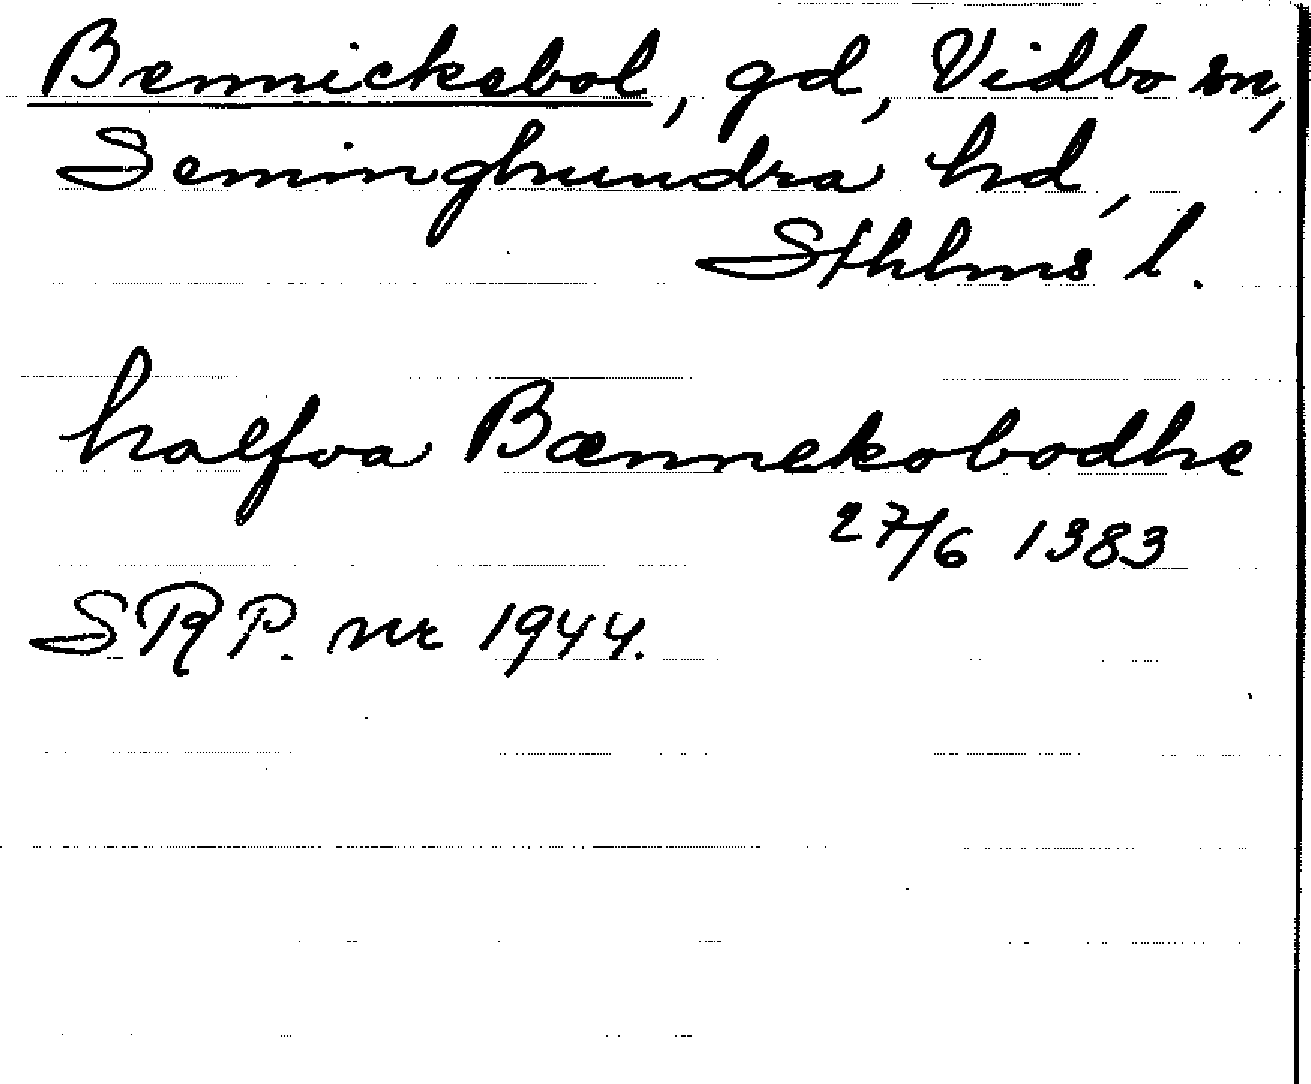 Bennickebol, gd, Vidbo sn,
Seminghundra hd,
Sthlms l.
halfva Bænnekobodhe
27/6 1383
SRP. nr 1944.